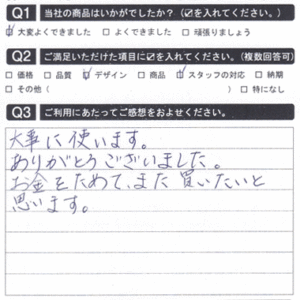 Q1 当社の商品はいかがでしたか?(☑を入れてください。)
☑大変よくできました □よくできました □頑張りましょう
Q2 ご満足いただけた項目に☑を入れてください。(複数回答可)
□価格 □品質 ☑デザイン □商品 ☑スタッフの対応 □納期
□その他( ) □特になし
Q3 ご利用にあたってご感想をおよせください。
大事に使います。
ありがとうございました。
お金をためて、また買いたいと
思います。